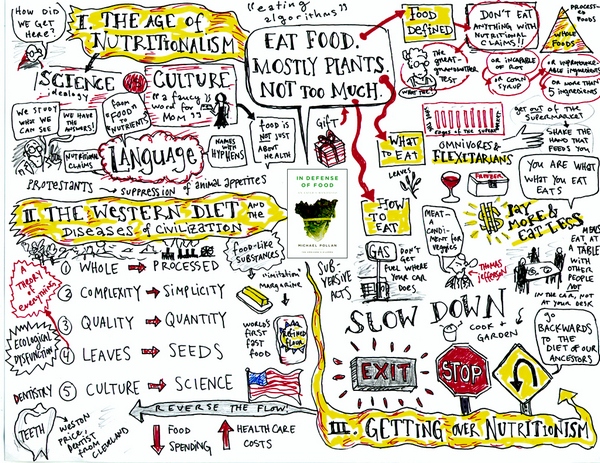 HOW DID WE GET HERE?
I. THE AGE of
NUTRITIONALISM
"eating
algorithms"
EAT FOOD.
MOSTLY PLANTS.
NOT TOO MUCH.
FOOD
DEFINED
DON'T EAT
ANYTHING WITH
NUTRITIONAL
CLAIMS!!
PROCESSED
FOODS
WHOLE
FOODS
The
great-
grandmother
TEST
or INCAPABLE
OF ROT
or CORN
SYRUP
or unpronounceable
ingredients
5
ingredients
SCIENCE
ideology
CULTURE
"a fancy
word for
MOM"
WE STUDY
WHAT WE
CAN SEE
WE HAVE
THE
ANSWERS!
from
"FOOD"
to
"NUTRIENTS"
NUTRITIONAL
CLAIMS
LANGUAGE
NAMES WITH
HYPHENS
PROTESTANTS → SUPPRESSION of animal appetites
food is
NOT JUST
ABOUT
HEALTH
Gift
edges of the supermarket
get out of the
SUPERMARKET
SHAKE
THE HAND
THAT
FEEDS YOU
WHAT
TO EAT
LEAVES
OMNIVORES &
FLEXITARIANS
FREEZER
YOU ARE
WHAT
WHAT YOU
EAT
EATS
PAY
MORE &
EAT LESS
HOW
TO
EAT
IN DEFENSE
OF FOOD
MICHAEL POLLAN
II. THE WESTERN DIET AND THE
DISEASES of CIVILIZATION
FOOD-LIKE
SUBSTANCES
"imitation"
margarine
WORLD'S
FIRST
FAST
FOOD
REFINED
FLOUR
A
THEORY
of
everything
① WHOLE → PROCESSED
② COMPLEXITY → SIMPLICITY
③ QUALITY → QUANTITY
④ LEAVES → SEEDS
⑤ CULTURE → SCIENCE
ECOLOGICAL
DISFUNCTION
DENTISTRY
TEETH
WESTON
PRICE,
DENTIST
FROM
CLEVELAND
REVERSE THE FLOW!
FOOD
SPENDING
HEALTH CARE
COSTS
SUBVERSIVE
ACTS
GAS
DON'T
GET
FUEL WHERE
YOUR CAR
DOES
MEAT—
A CONDIMENT
FOR
VEGGIES
THOMAS
JEFFERSON
MEALS
EAT AT
A TABLE
WITH
OTHER
PEOPLE
NOT
IN THE CAR, NOT
AT YOUR DESK
SLOW DOWN
COOK +
GARDEN
GO
BACKWARDS
TO THE
DIET OF OUR
ANCESTORS
EXIT
STOP
III. GETTING OVER NUTRITIONISM